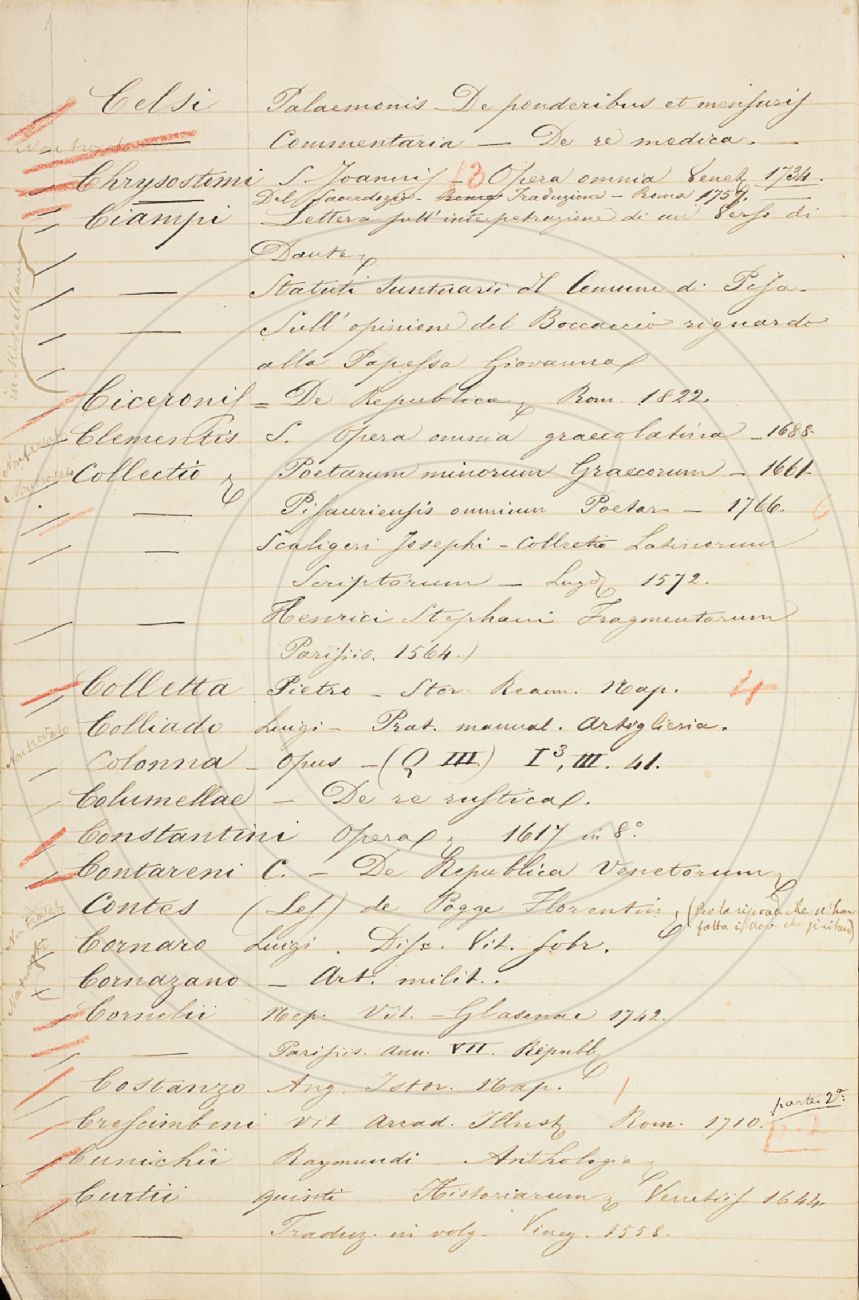 Celsi Palaemonis - De ponderibus et mensuris
— Commentaria — De re medica. —
Chrysostomi S. Joannis 13 Opera omnia Venet. 1734.
Del Sacerdozio - Traduzione - Roma 1757.
Ciampi Lettera sull'interpetrazione di un Verso di
Dante
— Statuti Suntuarii Il Comune di Pisa.
— Sull' opinione del Boccaccio riguardo
alla Papessa Giovanna
in Miscellanea
Ciceronis = De Republica Rom. 1822.
Clementis S. Opera omnia graecolatina - 1688.
Collectio Poetarum minorum Graecorum - 1661.
— Pisauriensis omnium Poetar - 1766. 6
— Scaligeri Josephi - Collectio Latinorum
Scriptorum — Lugd. 1572.
— Henrici Stephani Fragmentorum
Parisiis. 1564.
Colletta Pietro - Stor. Ream. Nap. 4
Colliado Luigi - Prat. manual. Artiglieria.
Non trovato
Colonna - Opus - (Q III) I 3, III. 41.
Columellae - De re rustica.
Constantini Opera 1617 in 8.°
Contareni C. - De Republica Venetorum
Contes (Les) de Pogge Florentin,
Non trovato
Cornaro Luigi. Disc. Vit. sobr.
Cornazano - Art. milit.
Cornelii Nep. Vit. - Glasenae 1742.
— Parisiis. Ann. VII. Republ.
Costanzo Ang. Istor. Nap. 1
parte 2a
Crescimbeni Vit. Arcad. Illust. Rom. 1710.
Cunichii Raymundi - Anthologia
Curtii Quinti Historiarum Venetiis 1644
— Traduz. in volg. Vineg. 1558.